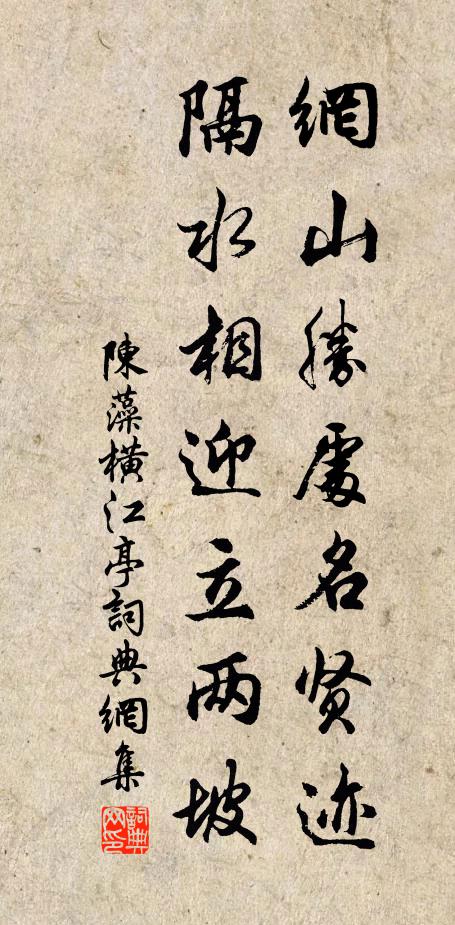 網山勝處名贤迹
隔水相迎立两坡
陳藻橫江亭詞典網集
詞典网印